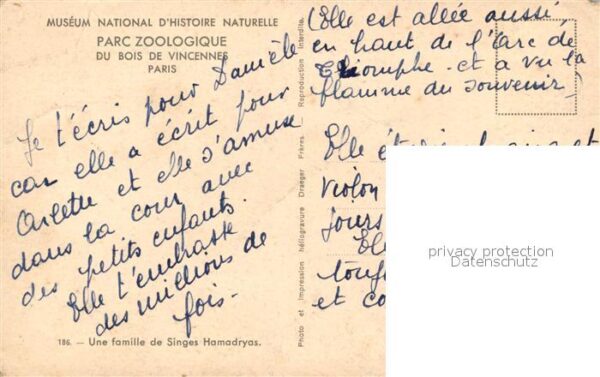 MUSÉUM NATIONAL D'HISTOIRE NATURELLE
PARC ZOOLOGIQUE
DU BOIS DE VINCENNES
PARIS
Je t'écris pour Danièle
car elle a écrit pour
Arlette et elle s'amuse
dans la cour avec
des petits enfants.
Elle t'embrasse
des millions de
fois-
186. — Une famille de Singes Hamadryas.
Photo et impression héliogravure Draeger Frères. — Reproduction interdite.
(Elle est allée aussi
en haut de l'Arc de
Triomphe - et a vu la
flamme du souvenir)
Elle et
violon
jours
Elle
et
privacy protection
Datenschutz